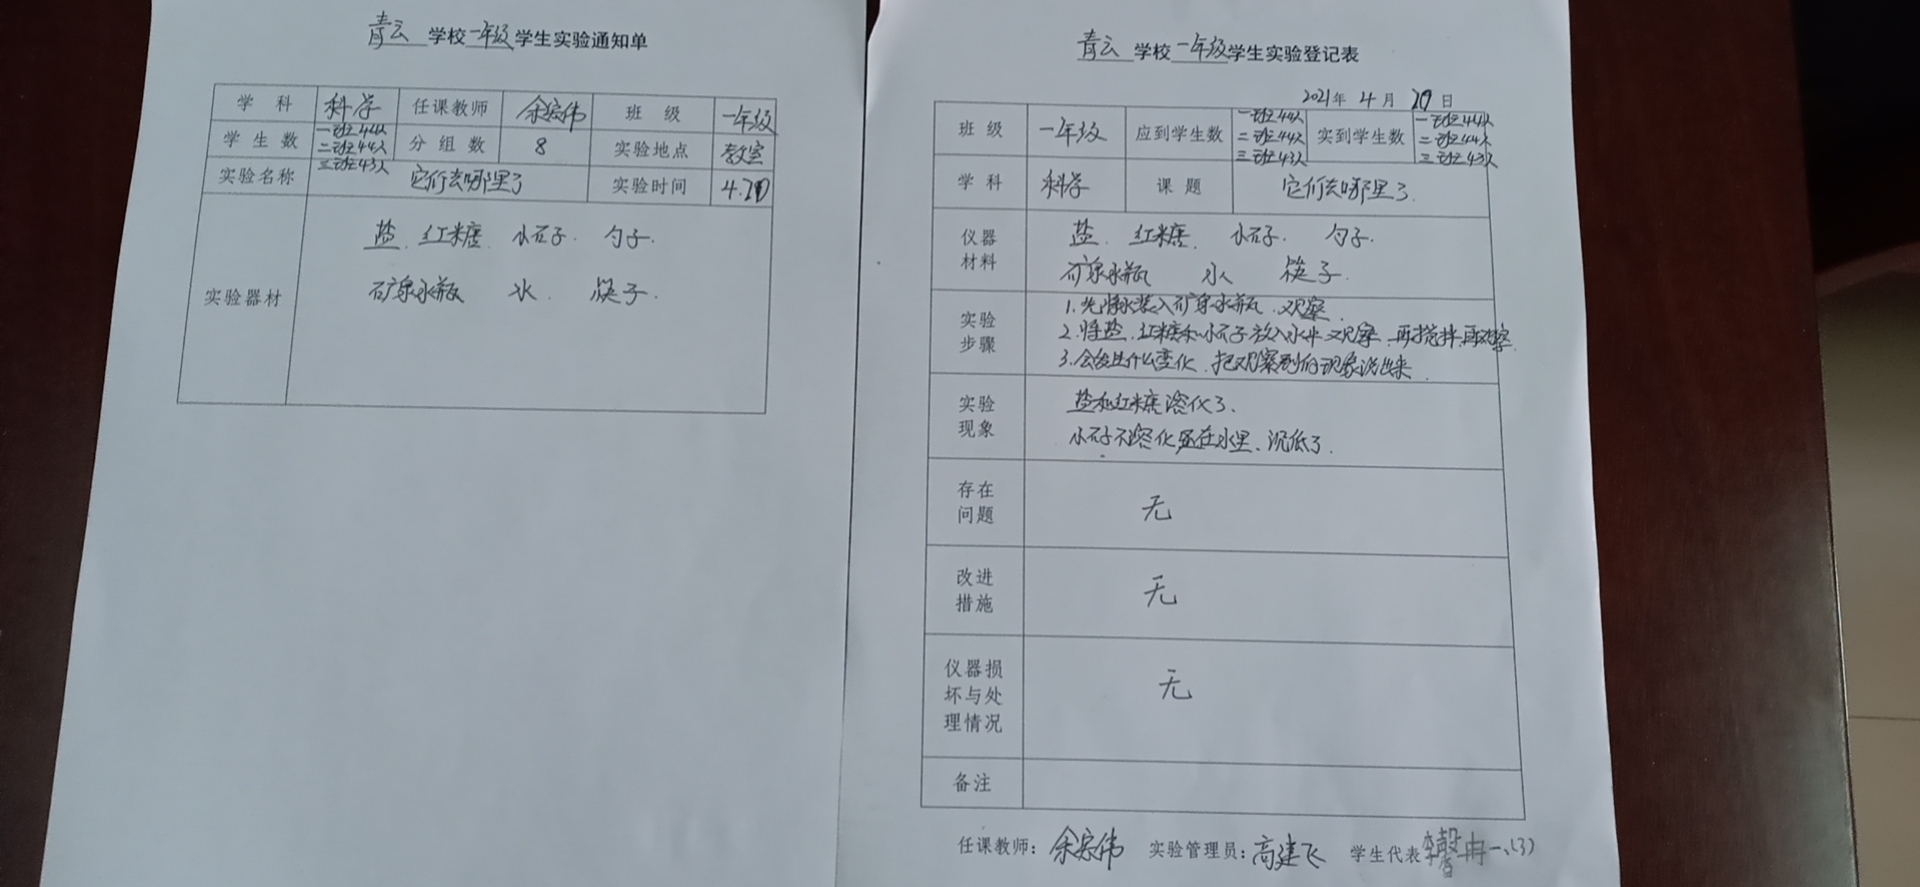 青云 学校 一年级 学生实验通知单
学科 科学 任课教师 余宗伟 班级 一年级
学生数 一班44人 二班44人 三班43人 分组数 8 实验地点 教室
实验名称 它们去哪里了 实验时间 4.20
实验器材
盐. 红糖. 小石子. 勺子.
矿泉水瓶 水. 筷子.
青云 学校 一年级 学生实验登记表
2021年 4 月 20 日
班级 一年级 应到学生数 一班44人 二班44人 三班43人 实到学生数 一班44人 二班44人 三班43人
学科 科学 课题 它们去哪里了.
仪器材料
盐. 红糖. 小石子. 勺子.
矿泉水瓶 水 筷子.
实验步骤
1.先将水装入矿泉水瓶.观察.
2.将盐.红糖和小石子放入水中观察.再搅拌.再观察.
3.会发生什么变化.把观察到的现象说出来.
实验现象
盐和红糖溶化了.
小石子不溶化还在水里、沉低了.
存在问题 无
改进措施 无
仪器损坏与处理情况 无
备注
任课教师: 余宗伟 实验管理员: 高建飞 学生代表 一.(3)